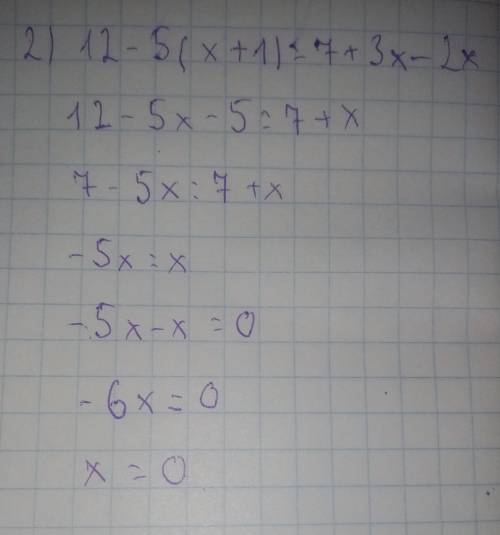 2) 12 - 5(x + 1) = 7 + 3x - 2x
12 - 5x - 5 = 7 + x
7 - 5x = 7 + x
-5x = x
-5x - x = 0
-6x = 0
x = 0